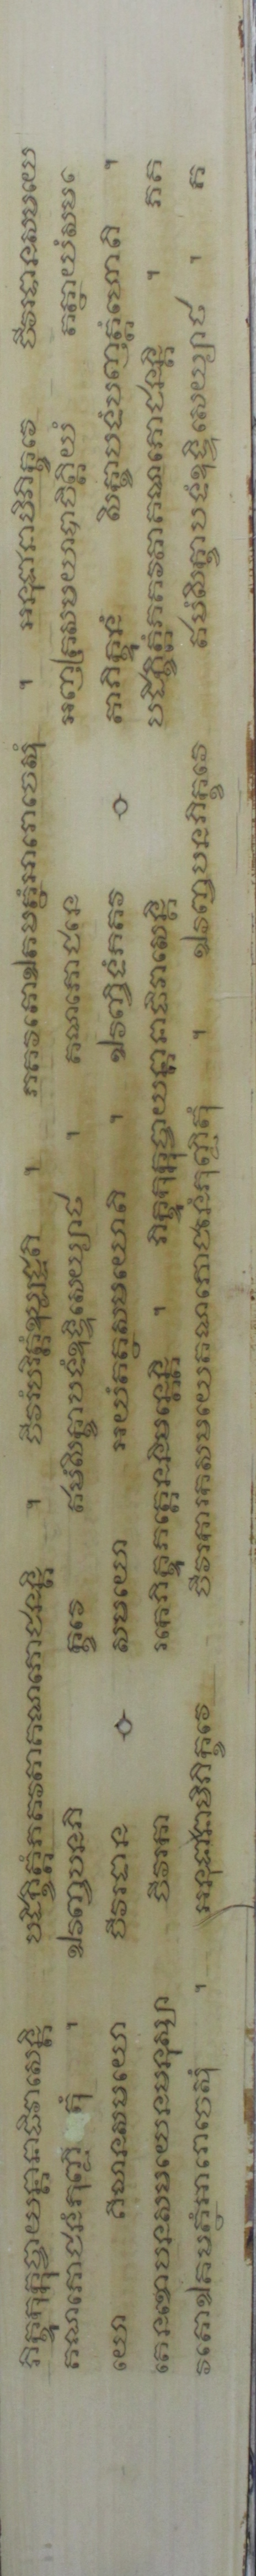 ភិក្ខូកុក្កុច្ចាយន្តានាធិវាសេន្តិ បដិក្ខិត្តំភគវតាគណភោជនន្តិ ។ ចីវរំបរិត្តំឧប្បជ្ជតិ ។ ភគវតោឯតមត្ថំអារោចេសុំ ។ អនុជានាមិភិក្ខវេ ចីវរទានសមយេ
គណភោជនំភុញ្ជិតុំ ។ ឯវញ្ចបនភិ ក្ខវេ ឥមំសិក្ខាបទំឧទ្ទិសេយ្យាថ ។ គណភោជនេ អញ្ញត្រសមយាបាចិត្តិយំ តត្ថាយំសម
យោ គិលានសមយោ ចីវរទាន សមយោ អយំតត្ថសមយោតិ ។ ឯវញ្ចិទំភគវ តាភិក្ខូនំ សិក្ខាបទំបញ្ញត្តំហោតិ ។
តេនខោបនសមយេនមនុស្សា ចីវរកា រកេភិក្ខូភត្តេននិមន្តេន្តិ ។ ភិក្ខូកុក្កុច្ចាយន្តានាធិវាសេន្តិ បដិក្ខិត្តំភគវតាគណភោជនន្តិ ។ ភគ
វតោឯតមត្ថំអារោចេសុំ ។ អនុជានាមិភិក្ខវេ ចីវរការកសមយេគណភោជនំភុញ្ជិតុំ ។ ឯវញ្ចបនភិក្ខវេ ឥមំសិក្ខាបទំឧទ្ទិសេយ្យាថ ។ គ